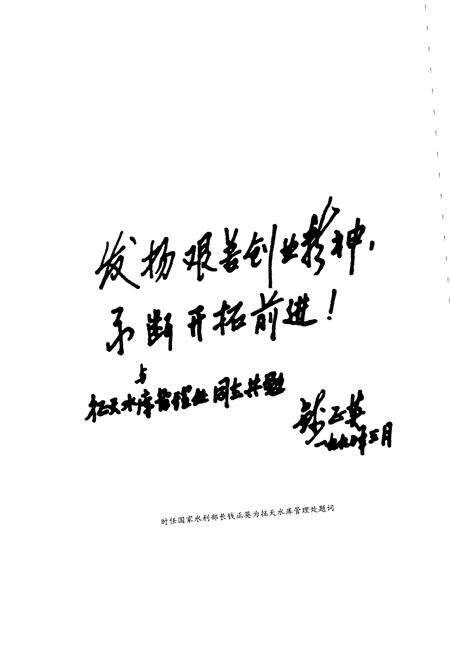 发扬艰苦创业精神,
不断开拓前进!
与
拦天水库管理处同志共勉
钱正英
一九九〇年三月
时任国家水利部长钱正英为拦天水库管理处题词